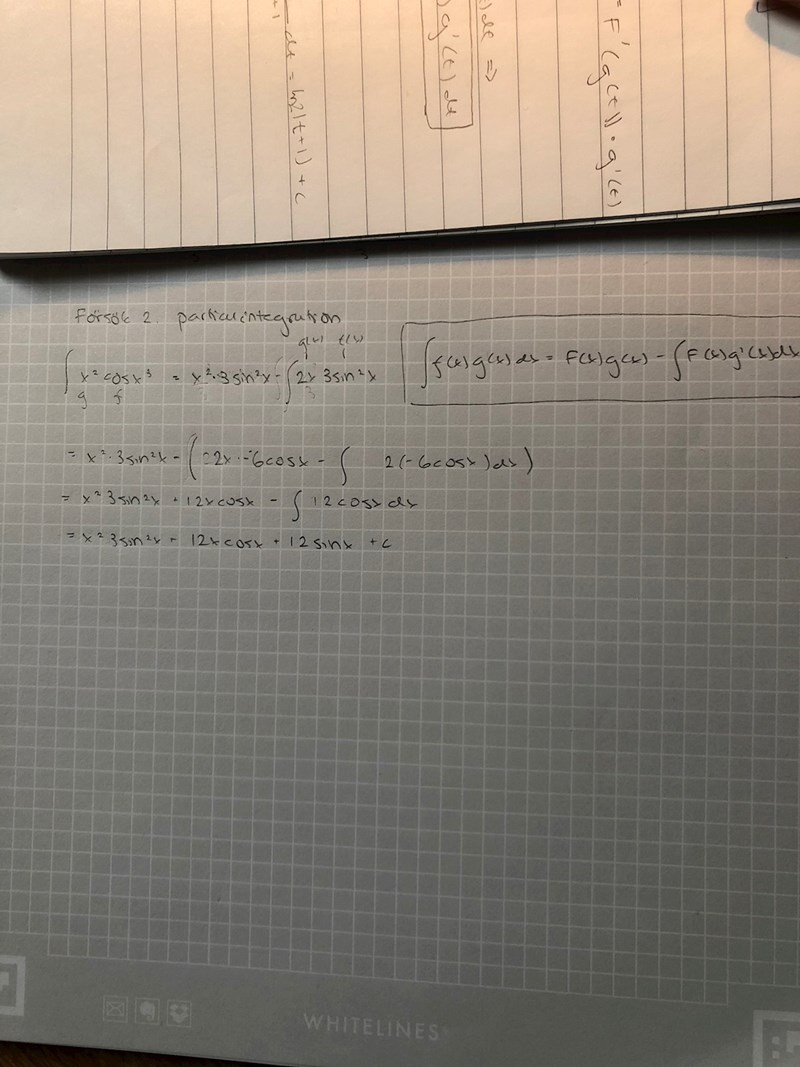 = F'(g(t)) · g'(t)
) dt ⇒
) g'(t) dt
dt = ln|t+1| + c
Försök 2. partialintegration
g(x) f(x)
∫ x² cos x³ = x²·3 sin²x - ∫ 2x 3 sin²x
g f
∫ f(x) g(x) dx = F(x) g(x) - ∫ F(x) g'(x) dx
= x²·3 sin²x - ( 2x·-6cosx - ∫ 2(-6cosx) dx )
= x² 3 sin²x + 12x cosx - ∫ 12 cosx dx
= x² 3 sin²x - 12x cosx + 12 sinx + c
WHITELINES